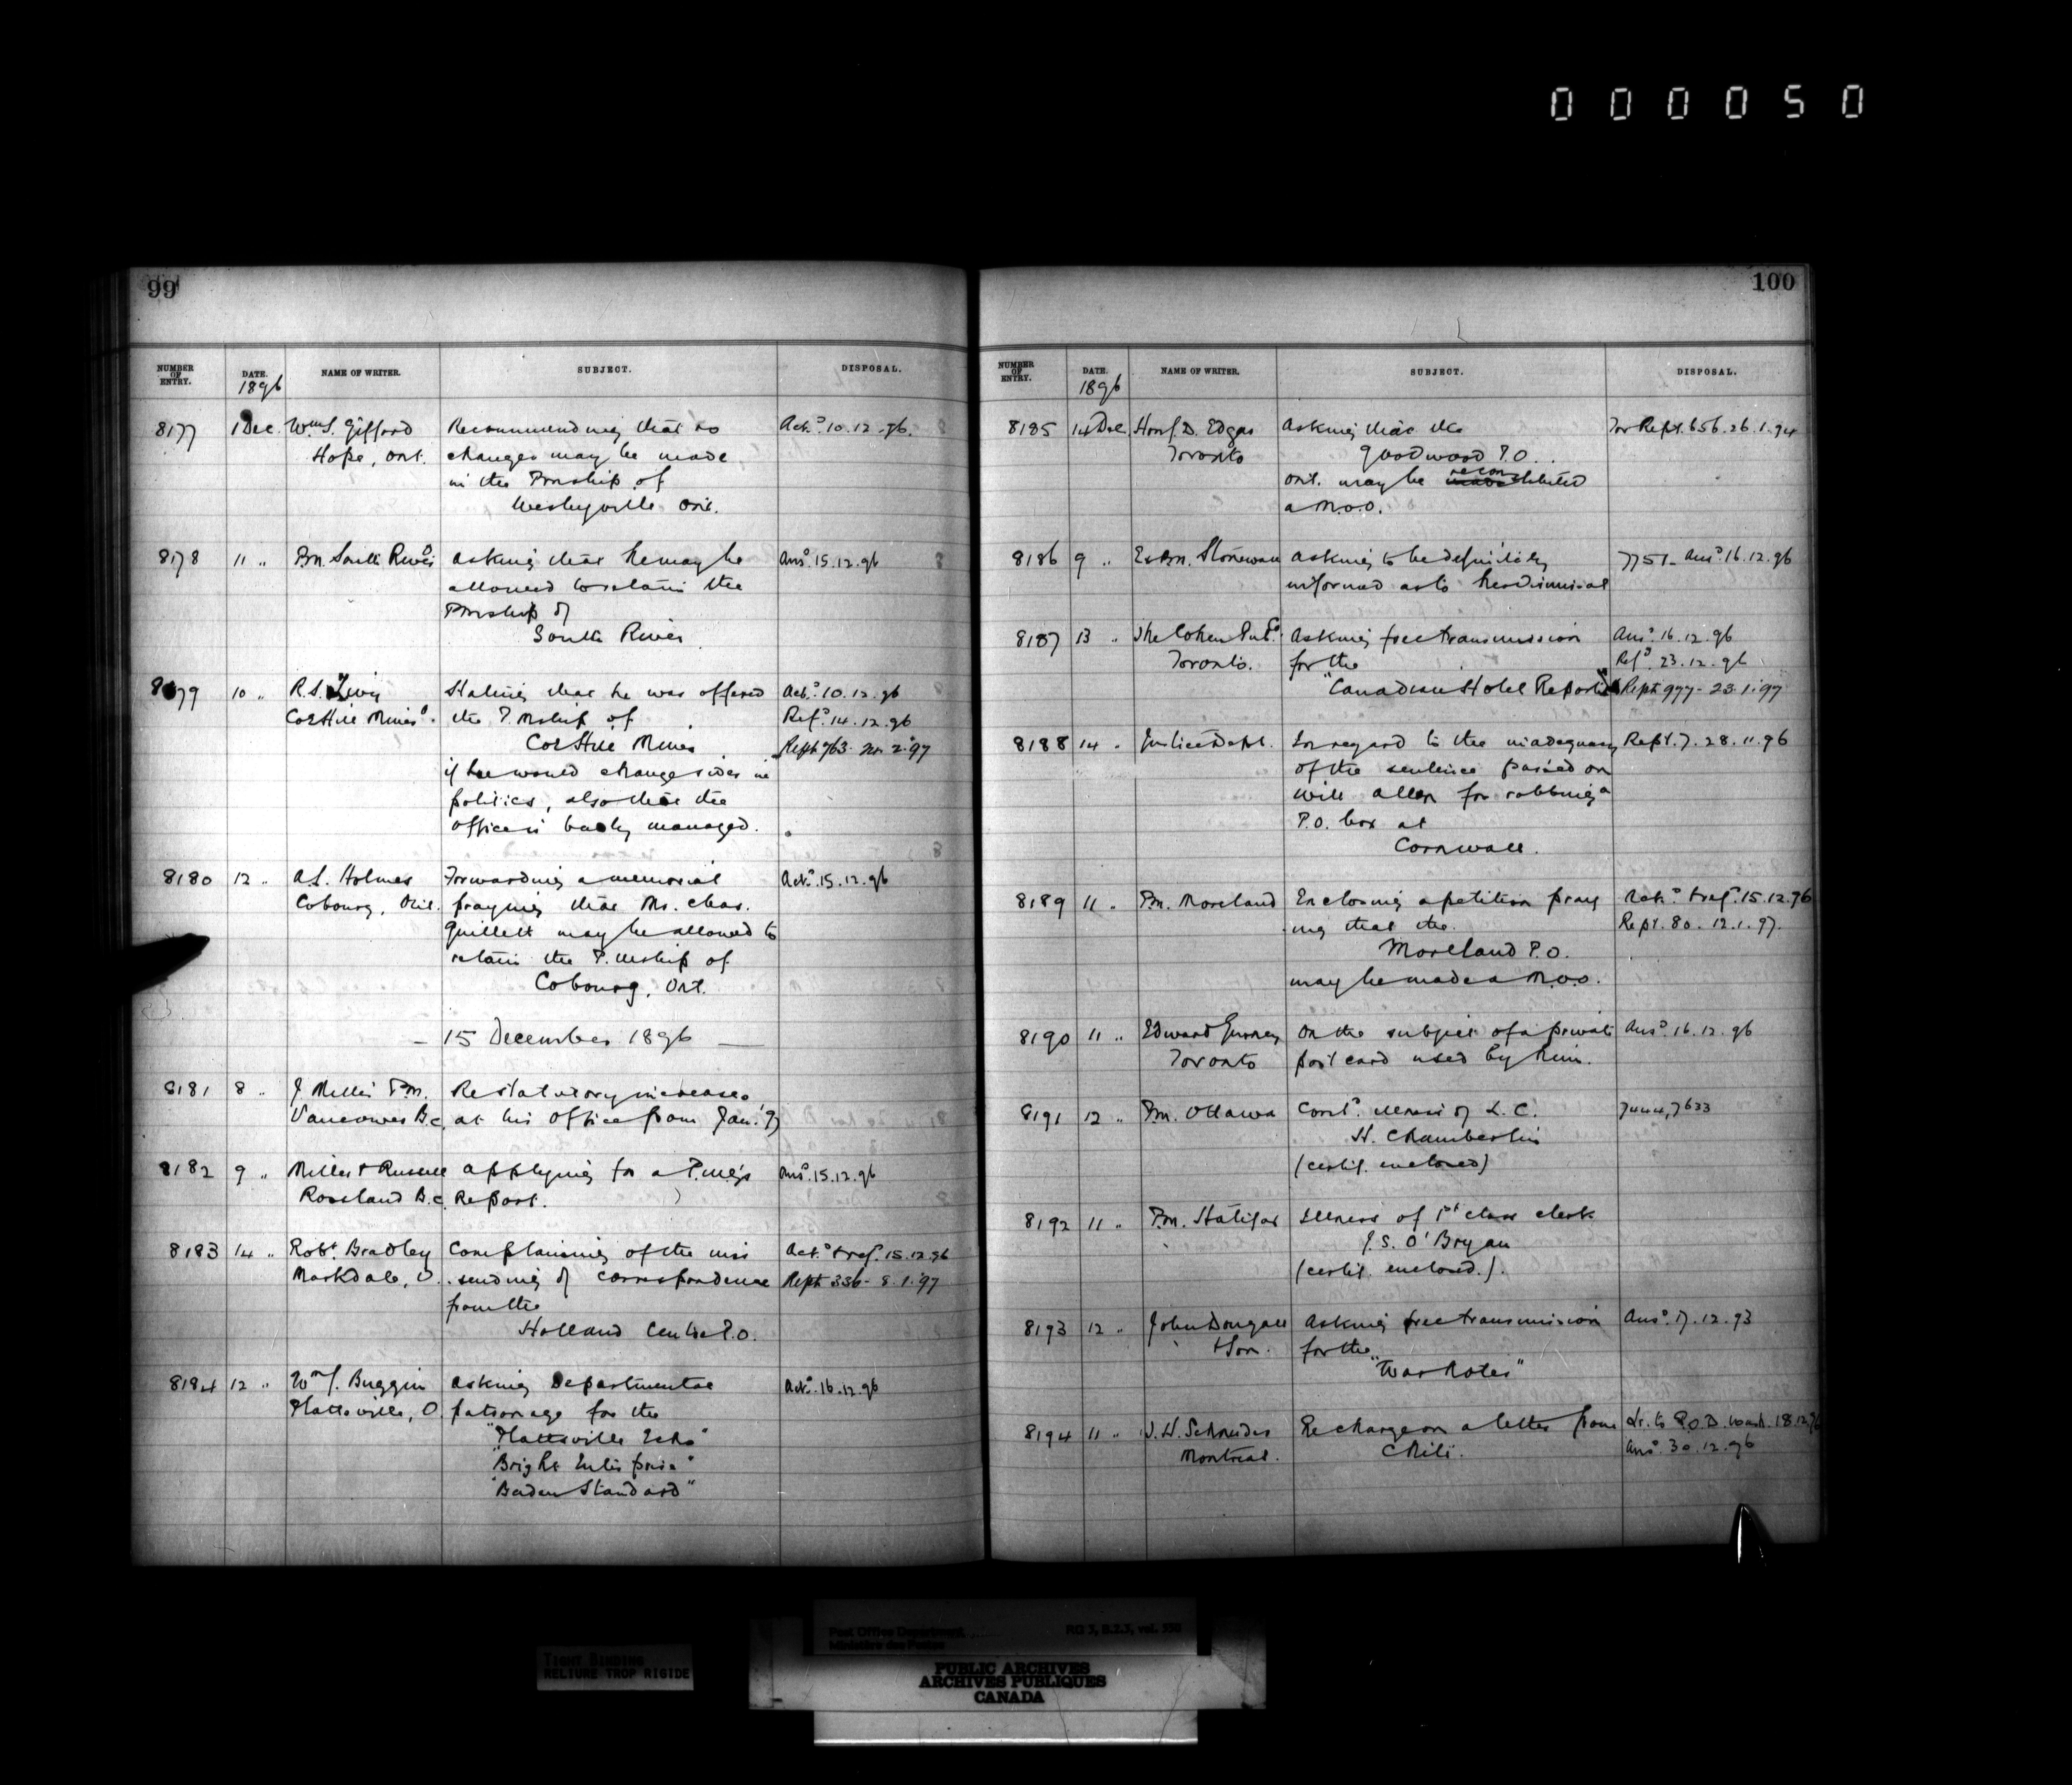 000050
99
NUMBER OF ENTRY. DATE. NAME OF WRITER. SUBJECT. DISPOSAL.
1896
8177 1 Dec. Wm S. Gifford Recommending that no Ack.d 10.12.96.
Hope, Ont. changes may be made
in the Pmship of
Wesleyville Ont.
8178 11 " Pm. South River asking that he may be Ans.d 15.12.96
allowed to retain the
Pmship of
South River
8179 10 " R.S. Stating that he was offered Ack.d 10.12.96
Coe Hill Mines O. the P.mship of Ref.d 14.12.96
Coe Hill Mines Rept 763- 2.97
if he would change sides in
politics, also that the
office is badly managed.
8180 12 " A.S. Holmes Forwarding a memorial Ack.d 15.12.96
Cobourg, Ont. praying that Mr. Chas.
Guillett may be allowed to
retain the P.mship of
Cobourg, Ont.
- 15 December 1896 -
8181 8 " J. Miller P.M. Re statutory increases
Vancouver B.C. at his office from Jan. '97
8182 9 " Miller & Russell applying for a P.M.G's Ans.d 15.12.96
Rossland B.C. Report.
8183 14 " Robt. Bradley Complaining of the mis Ack.d & ref.d 15.12.96
Markdale, O. sending of correspondence Rept 336- 8.1.97
from the
Holland Centre P.O.
8184 12 " Wm J. Buggin asking Departmental Ack.d 16.12.96
Plattsville, O. patronage for the
"Plattsville Echo"
"Bright Enterprise"
"Baden Standard"
100
NUMBER OF ENTRY. DATE. NAME OF WRITER. SUBJECT. DISPOSAL.
1896
8185 14 Dec. Hon J. D. Edgar Asking that the For Rept. 656. 26.1.94
Toronto Goodwood P.O.
recon
Ont. may be stituted
a M.O.O.
8186 9 " Ex Pm. Stonewall Asking to be definitely 7751- Ans.d 16.12.96
informed as to her dismissal
8187 13 " The Cohen Pub Co. Asking free transmission Ans.d 16.12.96
Toronto. for the Ref.d 23.12.96
"Canadian Hotel Reporter" Rept 977- 23.1.97
8188 14 " Justice Dept. In regard to the inadequacy Rept. 7. 28.11.96
of the sentence passed on
Will Allen for robbing a
P.O. box at
Cornwall.
8189 11 " Pm. Moreland Enclosing a petition pray Ack.d & ref.d 15.12.96
ing that the Rept. 80. 12.1.97.
Moreland P.O.
may be made a M.O.O.
8190 11 " Edward Gurney On the subject of a private Ans.d 16.12.96
Toronto post card used by him.
8191 12 " Pm. Ottawa Cont.d illness of L.C. 7444, 7633
H. Chamberlin
(certif. enclosed)
8192 11 " Pm. Halifax Illness of 1st class clerk
J.S. O'Bryan
(certif. enclosed.)
8193 12 " John Dougall Asking free transmission Ans.d 17.12.93
& Son. for the
"War Notes"
8194 11 " Schneider Re charge on a letter from Lr. to P.O.D. Wash. 18.12.96
Montreal. Chili. Ans.d 30.12.96
TIGHT BINDING
RELIURE TROP RIGIDE
Post Office Department RG 3, B.2.3, vol. 558
Ministère des Postes
PUBLIC ARCHIVES
ARCHIVES PUBLIQUES
CANADA